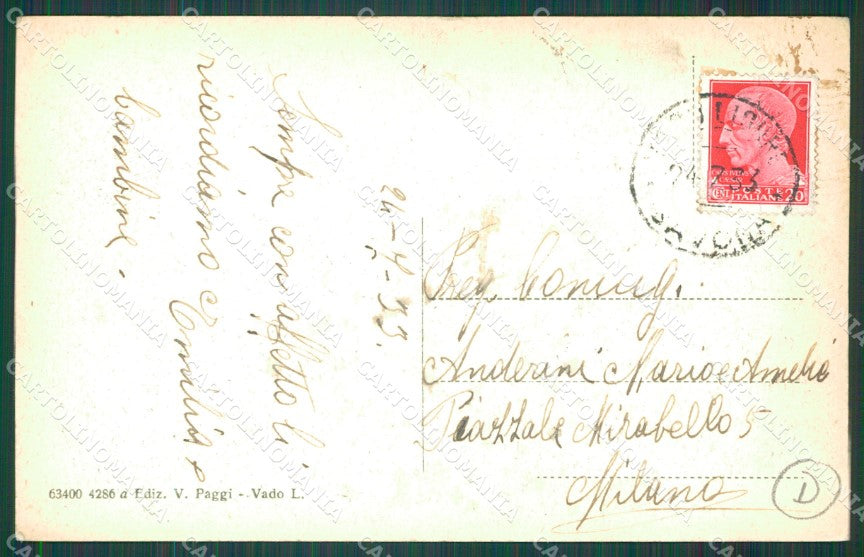 Sempre con affetto li
ricordiamo e Emilia e
bambine.
24-7-33.
Preg. Coniugi.
Anderini Mario e Amelia
Piazzale Mirabello 5
Milano
D
63400 4286 a Ediz. V. Paggi - Vado L.
POSTE
ITALIANE
CENT 20
SAVONA
CARTOLINOMANIA